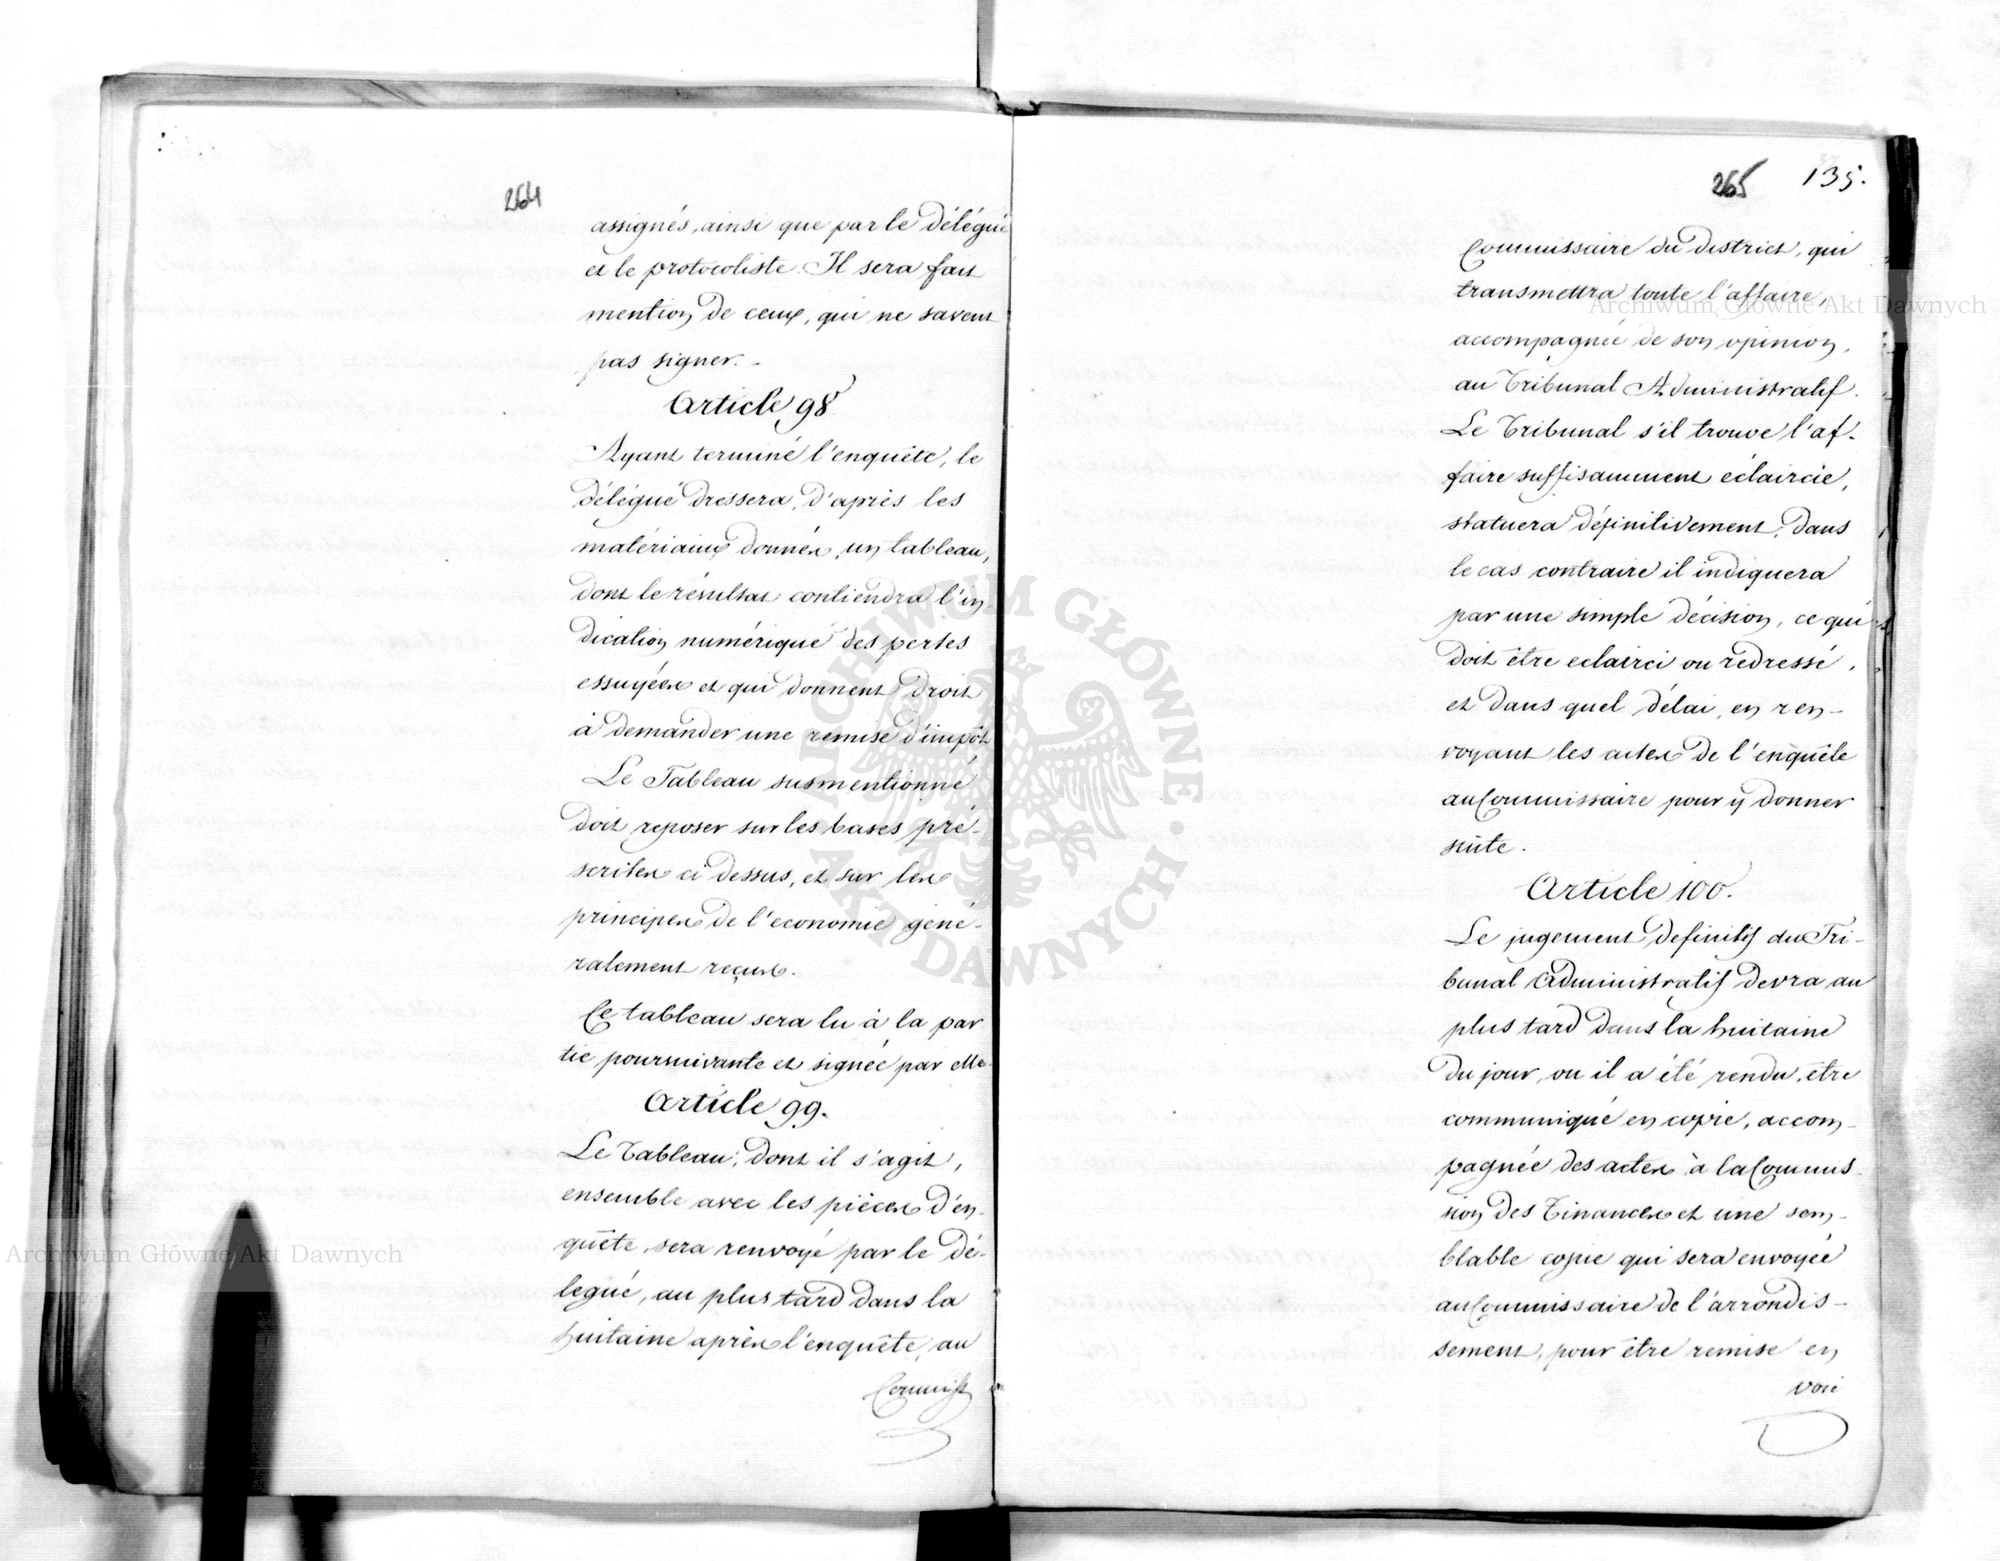 264
assignés, ainsi que par le délégué
et le protocoliste. Il sera fait
mention de ceux, qui ne savent
pas signer. -
Article 98
Ayant terminé l'enquête, le
délégué dressera, d'après les
matériaux donnés, un tableau,
dont le résultat contiendra l'in-
dication numérique des pertes
essuyées et qui donnent droit
à demander une remise d'impôt
Le Tableau susmentionné
doit reposer sur les bases pré-
scrites ci dessus, et sur les
principes de l'economie géné-
ralement reçus.
Ce tableau sera lu à la par
tie poursuivante et signée par elle.
Article 99.
Le Tableau, dont il s'agit,
ensemble avec les pièces d'en-
quête, sera renvoyé par le dé-
legué, au plus tard dans la
huitaine après l'enquête, au
Commiss
265 135.
Commissaire du District, qui
transmettra toute l'affaire,
accompagnée de son opinion,
au Tribunal Administratif.
Le Tribunal s'il trouve l'af-
faire suffisamment éclaircie,
statuera définitivement, dans
le cas contraire il indiquera
par une simple décision, ce qui
doit être eclairci ou redressé,
et dans quel délai, en ren-
voyant les actes de l'enquête
au Commissaire pour y donner
suite.
Article 100.
Le jugement definitif du Tri-
bunal Administratif devra au
plus tard dans la huitaine
du jour, ou il a été rendu, être
communiqué en copie, accom-
pagnée des actes à la Commis-
sion des Finances et une sem-
blable copie qui sera envoyée
au Commissaire de l'arrondis-
sement, pour être remise en
voie
Archiwum Główne Akt Dawnych
Archiwum Główne Akt Dawnych
ARCHIWUM GŁÓWNE AKT DAWNYCH